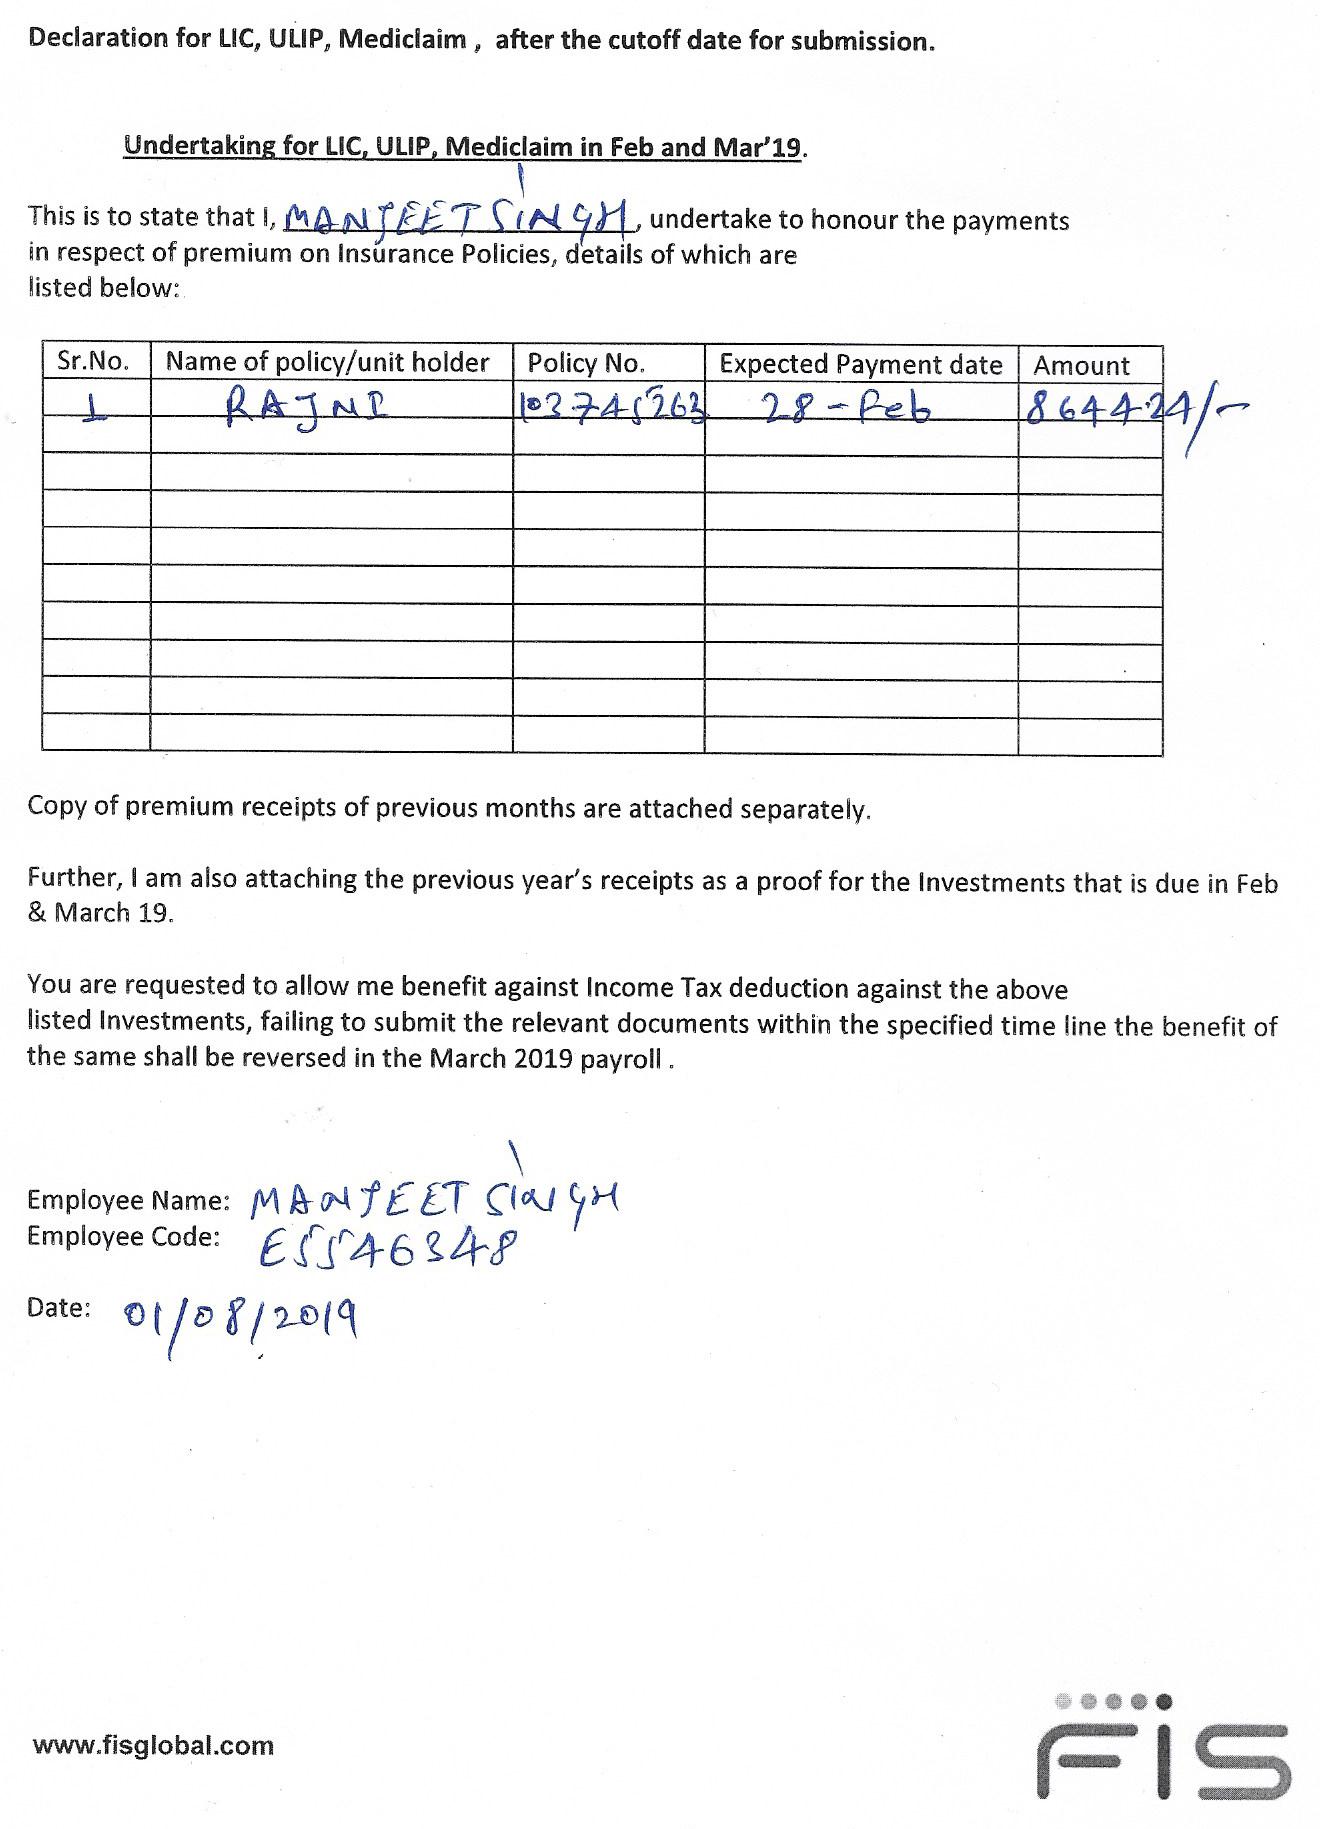 Declaration for LIC, ULIP, Mediclaim , after the cutoff date for submission.
Undertaking for LIC, ULIP, Mediclaim in Feb and Mar'19.
This is to state that I, MANJEET SINGH, undertake to honour the payments
in respect of premium on Insurance Policies, details of which are
listed below:
Sr.No. Name of policy/unit holder Policy No. Expected Payment date Amount
1 RAJNI 103745263 28-Feb 8644.24/-
Copy of premium receipts of previous months are attached separately.
Further, I am also attaching the previous year's receipts as a proof for the Investments that is due in Feb
& March 19.
You are requested to allow me benefit against Income Tax deduction against the above
listed Investments, failing to submit the relevant documents within the specified time line the benefit of
the same shall be reversed in the March 2019 payroll .
Employee Name: MANJEET SINGH
Employee Code: E5546348
Date: 01/08/2019
www.fisglobal.com
FIS